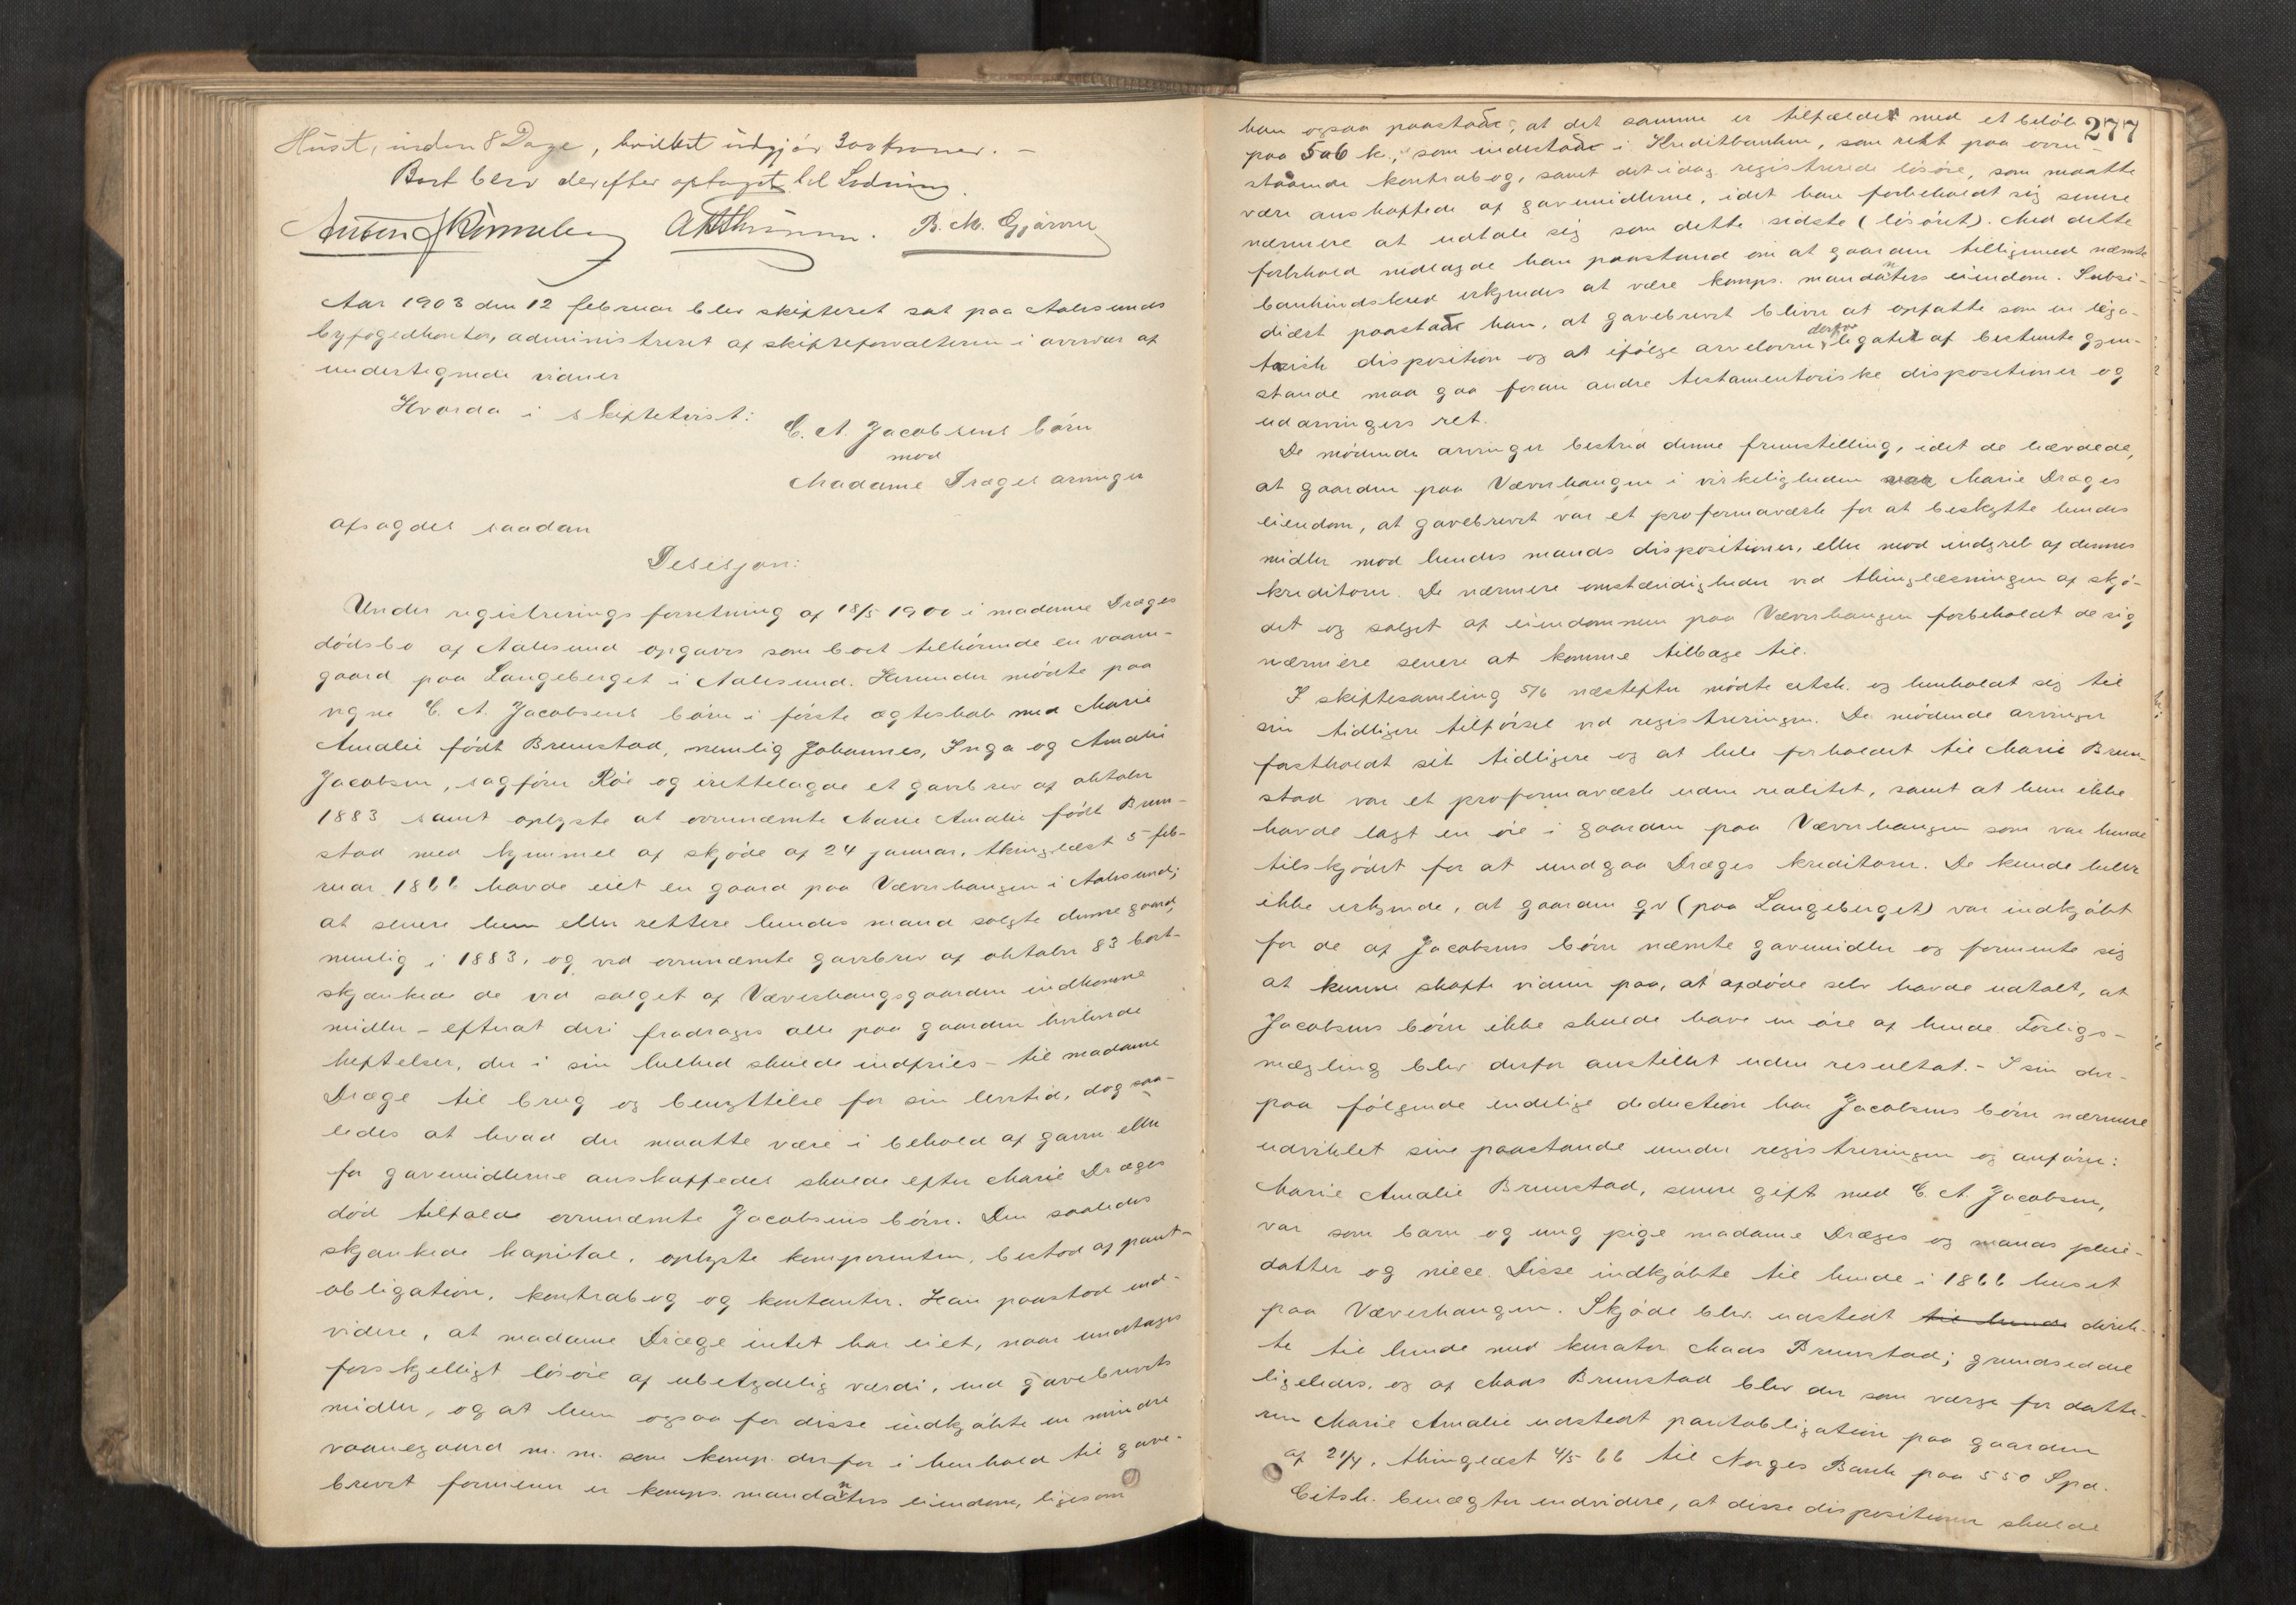 Huset, inden 8 Dage, hvilket udgjør 300 kroner. —
Boet blev derefter optaget til Lodning.
B. M. Gjærve
Aar 1903 den 12 februar blev skifteret sat paa Aalesunds
byfogedkontor, administreret af skifteforvalteren i overvær af
undertegnede vidner
Hvorda i skiftetvist:
C. A. Jacobsens børn
mod
Madame Dræges arvinger
afsagdes saadan
Desisjon:
Under registreringsforretning af 18/5 1900 i madame Dræges
dødsbo af Aalesund opgaves som boet tilhørende en vaan-
gaard paa Langeberget i Aalesund. Herunder mødte paa
vegne C. A. Jacobsens børn i første ægteskab med Marie
Amalie født Brunstad, nemlig Johannes, Inga og Amalie
Jacobsen, sagfører Røe og irettelagde et gavebrev af oktober
1883 samt oplyste at ovennævnte Marie Amalie født Brun-
stad med hjemmel af skjøde af 24 januar, thinglæst 5 feb-
ruar 1866 havde eiet en gaard paa Væverhaugen i Aalesund;
at senere hun eller rettere hendes mand solgte denne gaard,
nemlig i 1883, og ved ovennævnte gavebrev af oktober 83 bort-
skjænkede de ved salget af Væverhaugsgaarden indkomne
midler – efterat deri fradrages alle paa gaarden hvilende
heftelser, der i sin helhed skulde indfries – til madame
Dræge til brug og benyttelse for sin levetid, dog saa-
ledes at hvad der maatte være i behold af gaven eller
for gavemidlerne anskaffedes skulde efter Marie Dræges
død tilfalde ovennævnte Jacobsens børn. Den saaledes
skjænkede kapital, oplyste komparenten, bestod af pant-
obligation, kontrabog og kontanter. Han paastod end-
videre, at madame Dræge intet har eiet, naar undtages
forskjelligt løsøre af ubetydelig værdi, end gavebrevets
midler, og at hun ogsaa for disse indkjøbte en mindre
vaanegaard m. m. som komp. derfor i henhold til gave-
brevet formener er komps. mandanters eiendom, ligesom
277
han ogsaa paastod, at det samme er tilfældet med et beløb
paa 506 k., som indestod i Kreditbanken, som rest paa oven-
staaende kontrabog, samt det idag registrerede løsøre, som maatte
være anskaffede af gavemidlerne, idet han forbeholdt sig senere
nærmere at udtale sig som dette sidste (løsøret). Med dette
forbehold nedlagde han paastand om at gaarden tilligemed nævnte
bankindskud erkjendes at være komps. mandanters eiendom. Subsi-
diært paastod han, at gavebrevet bliver at opfatte som en lega-
tarisk disposition og at ifølge arveloven derfor legatet af bestemte gjen-
stande maa gaa foran andre testamentoriske dispositioner og
udarvingers ret.
De mødende arvinger bestred denne fremstilling, idet de hævdede,
at gaarden paa Væverhaugen i virkeligheden var Marie Dræges
eiendom, at gavebrevet var et proformaværk for at beskytte hendes
midler mod hendes mands dispositioner, eller mod indgreb af dennes
kreditorer. De nærmere omstændigheder ved thinglæsningen af skjø-
det og salget af eiendommen paa Væverhaugen forbeholdt de sig
nærmere senere at komme tilbage til.
I skiftesamling 5/6 næstefter mødte citsk. og henholdt sig til
sin tidligere tilførsel ved registreringen. De mødende arvinger
fastholdt sit tidligere og at hele forholdet til Marie Brun-
stad var et proformaværk uden realitet, samt at hun ikke
havde lagt en øre i gaarden paa Væverhaugen som var hende
tilskjødet for at undgaa Dræges kreditorer. De kunde heller
ikke erkjende, at gaarden qv (paa Langeberget) var indkjøbt
for de af Jacobsens børn nævnte gavemidler og formente sig
at kunne skaffe vidner paa, at afdøde selv havde udtalt, at
Jacobsens børn ikke skulde have en øre af hende. Forligs-
mægling blev derfor anstillet uden resultat. – I sin der-
paa følgende endelige deduction har Jacobsens børn nærmere
udviklet sine paastande under registreringen og anfører:
Marie Amalie Brunstad, senere gift med C. A. Jacobsen,
var som barn og ung pige madame Dræges og mands pleie-
datter og niece. Disse indkjøbte til hende i 1866 huset
paa Væverhaugen. Skjøde blev udstedt til hende direk-
te til hende med kurator Mads Brunstad; grundseddel
ligeledes, og af Mads Brunstad blev der som værge for datte-
ren Marie Amalie udstedt pantobligation paa gaarden
af 21/4, thinglæst 4/5 66 til Norges Bank paa 550 Spd.
Citsk. benægter endvidere, at disse dispositioner skulde